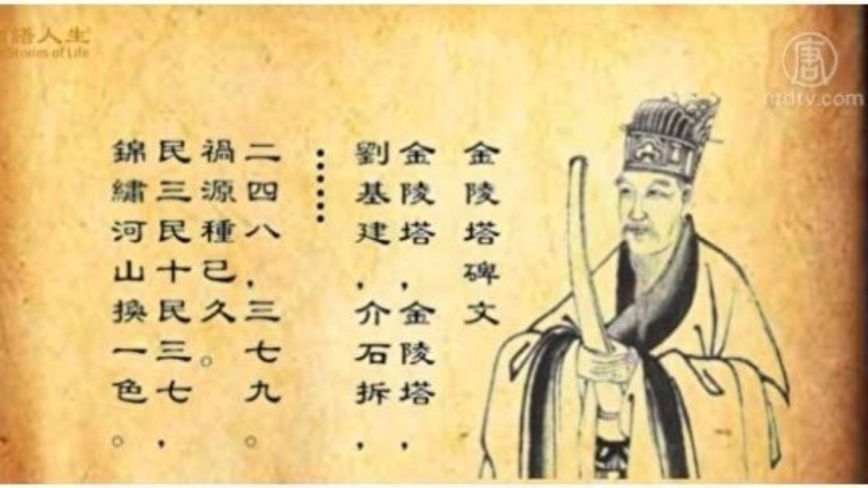 語人生
Stories of Life
唐
ntdtv.com
金陵塔碑文
金陵塔，金陵塔，
劉基建，介石拆，
……
二四八，三七九。
禍源種已久。
民三民十民三七，
錦繡河山換一色。